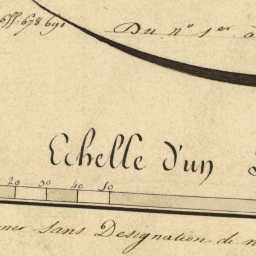 677 678 691
Du n.º 1.er
Echelle d'un
20 30 40 50
sans Designation de